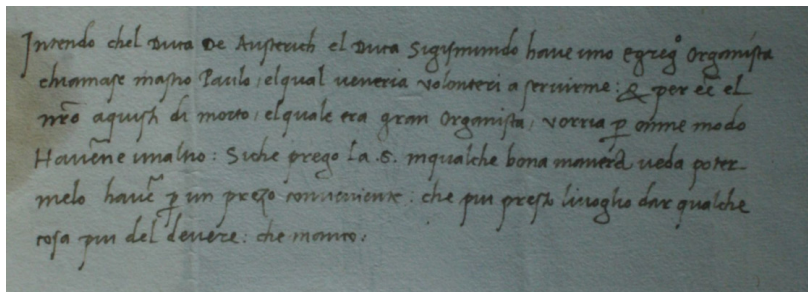 Intendo chel Duca De Austerich el Duca Sigismundo have uno egreg.º Organista
chiamase mastro Paulo, elqual veneria volonteri a servirme: & per eē el
nr̄o aquisti di morto, elquale era gran Organista, vorria ꝑ omne modo
Havēne unaltro: Siche prego la .S. inqualche bona manera veda poter-
melo havē ꝑ un prezo conveniente: che piu presto livoglio dar qualche
cosa piu del devere: che manco.